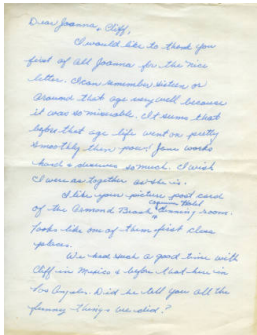 Dear Joanna & Cliff,
I would like to thank you
first of all Joanna for the nice
letter. I can remember sixteen or
around that age very well because
it was so miserable. It seems that
before that age life went on pretty
smoothly then pow! Jane works
hard & deserves so much. I wish
I were as together as she is.
I like your picture post card
of the Ormond Beach Hotel dinning room.
Looks like one of them first class
places.
We had such a good time with
Cliff in Mexico & before that here in
Los Angeles. Did he tell you all the
funny things we did?